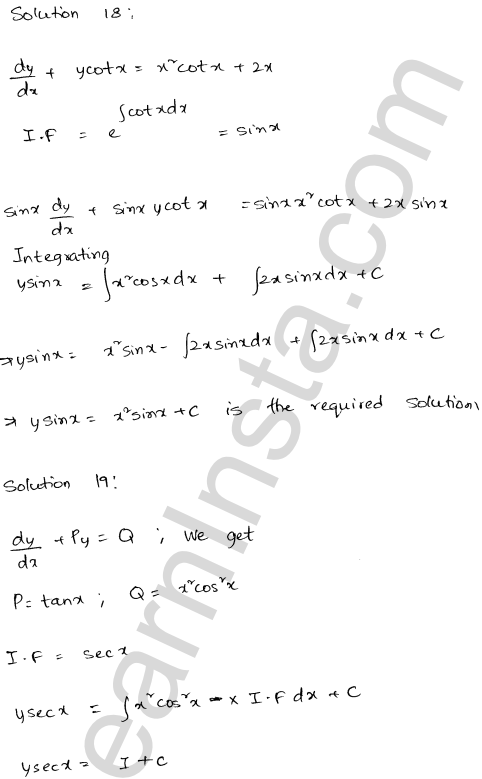 Solution 18:
dy/dx + ycotx = x²cotx + 2x
I.F = e^∫cotxdx = sinx
sinx dy/dx + sinx ycotx = sinx x²cotx + 2x sinx
Integrating
ysinx = ∫x²cosxdx + ∫2xsinxdx + C
⇒ysinx = x²sinx - ∫2xsinxdx + ∫2xsinxdx + C
⇒ ysinx = x²sinx + C is the required solution
Solution 19:
dy/dx + Py = Q ; we get
P = tanx ; Q = x²cos²x
I.F = secx
ysecx = ∫x²cos²x - x I.F dx + C
ysecx = I + C
earnInsta.com